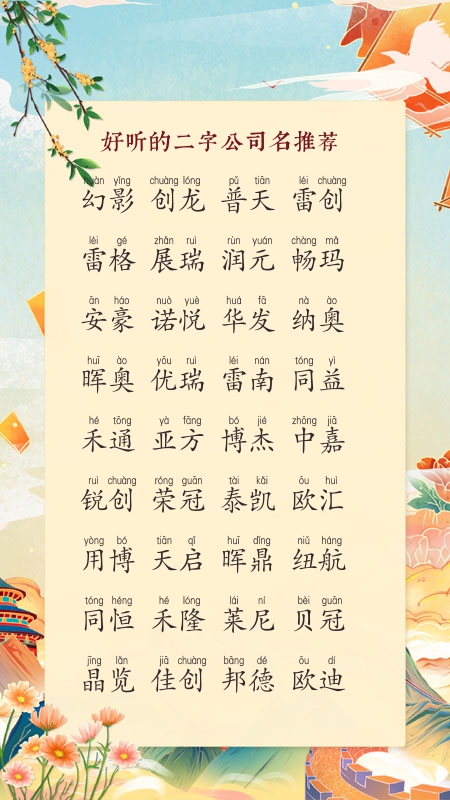 好听的二字公司名推荐
huàn yǐng chuàng lóng pǔ tiān léi chuàng
幻影 创龙 普天 雷创
léi gé zhǎn ruì rùn yuán chàng mǎ
雷格 展瑞 润元 畅玛
ān háo nuò yuè huá fā nà ào
安豪 诺悦 华发 纳奥
huī ào yōu ruì léi nán tóng yì
晖奥 优瑞 雷南 同益
hé tōng yà fāng bó jié zhōng jiā
禾通 亚方 博杰 中嘉
ruì chuàng róng guān tài kǎi ōu huì
锐创 荣冠 泰凯 欧汇
yòng bó tiān qǐ huī dǐng niǔ háng
用博 天启 晖鼎 纽航
tóng héng hé lóng lái ní bèi guān
同恒 禾隆 莱尼 贝冠
jīng lǎn jiā chuàng bāng dé ōu dí
晶览 佳创 邦德 欧迪